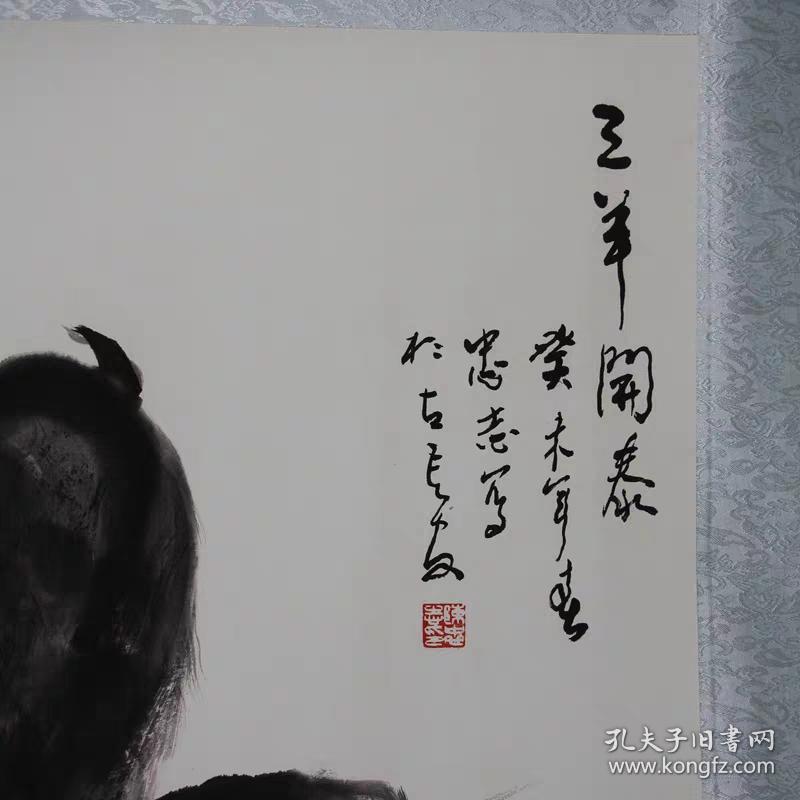 三羊開泰
癸未年春
忠志寫
於古長安
陳忠志
孔夫子旧書网
www.kongfz.com